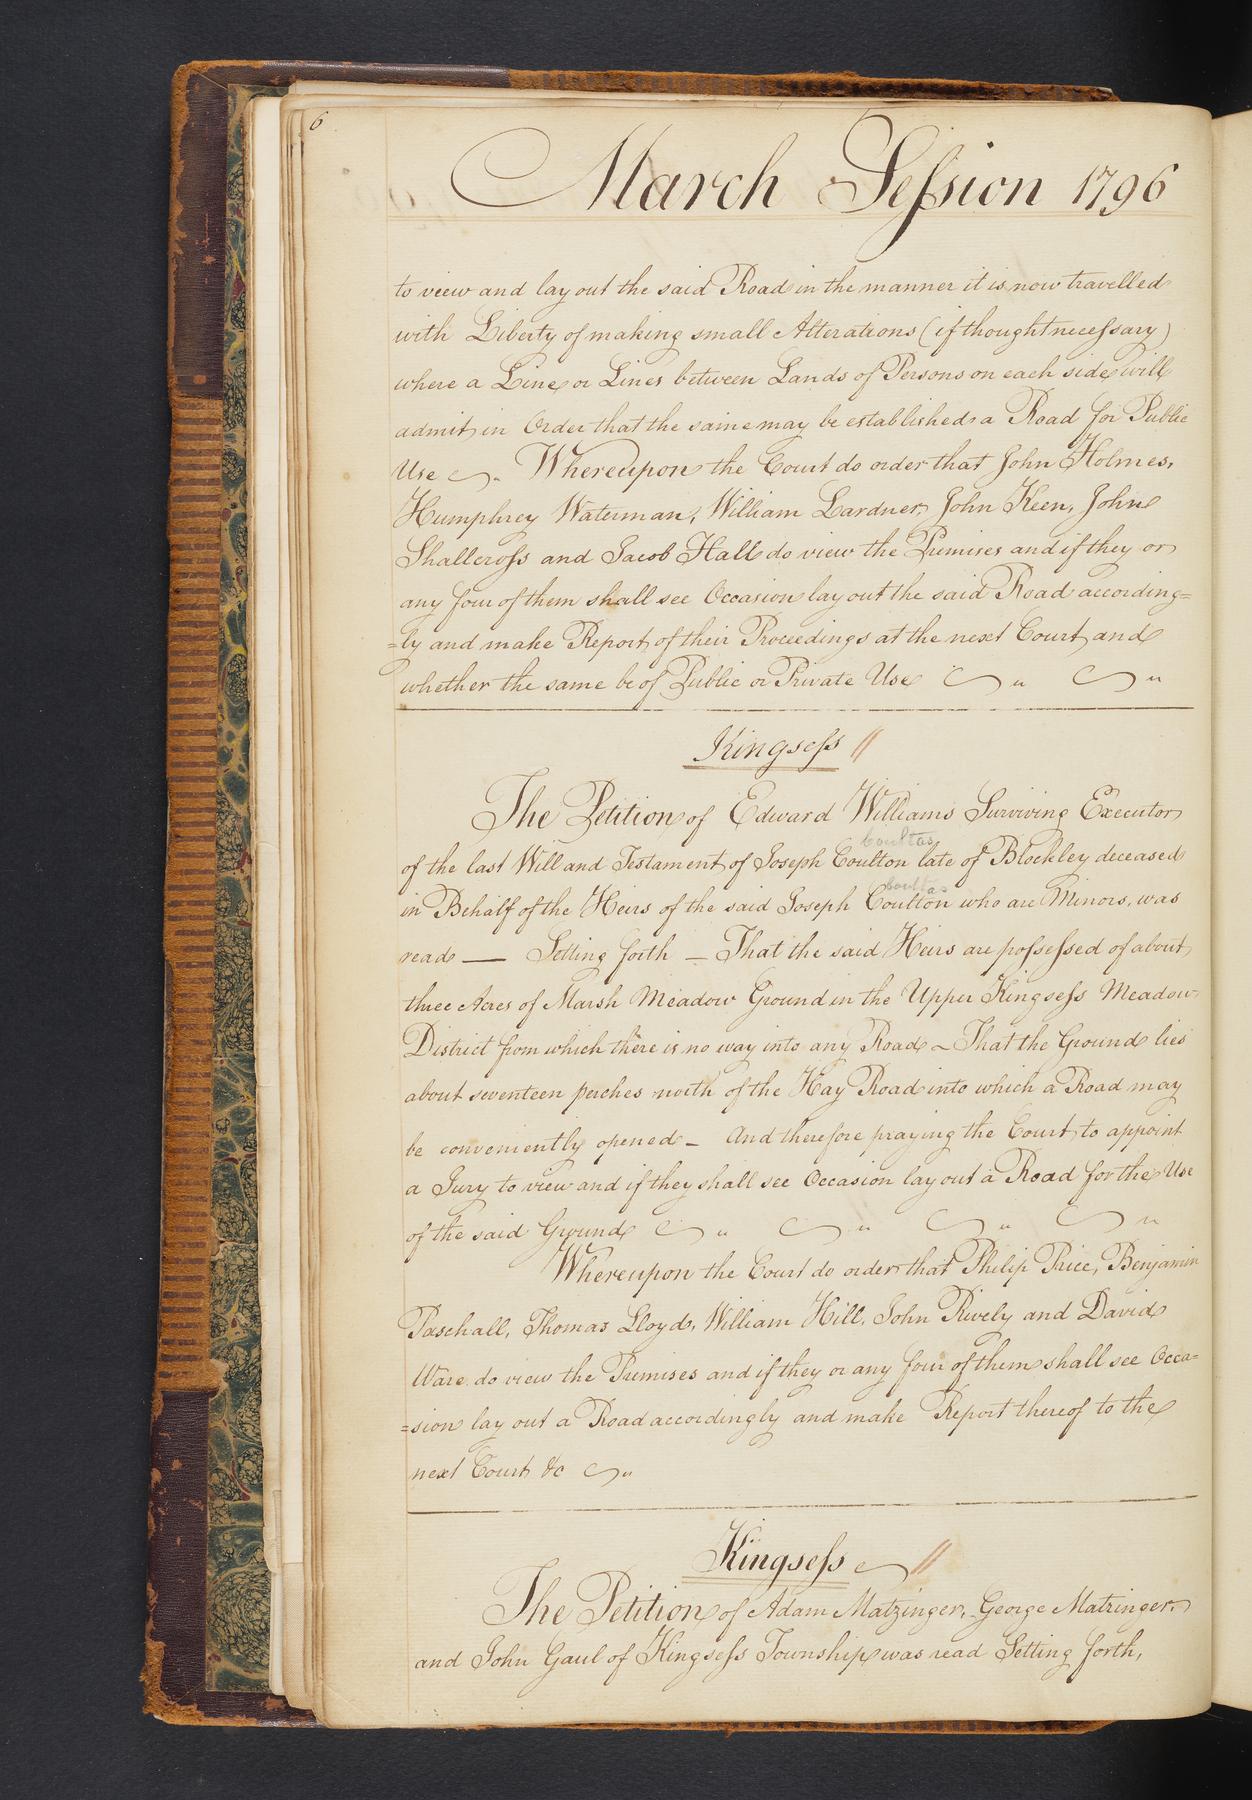 6
March Session 1796
to view and lay out the said Road in the manner it is now travelled
with Liberty of making small Alterations (if thought necessary)
where a Line or Lines between Lands of Persons on each side will
admit in Order that the same may be established a Road for Public
Use . Whereupon the Court do order that John Holmes,
Humphrey Waterman, William Lardner, John Keen, John
Shallcross and Jacob Hall do view the Premises and if they or
any four of them shall see Occasion lay out the said Road according=
=ly and make Report of their Proceedings at the next Court and
whether the same be of Public or Private Use " "
Kingsess //
The Petition of Edward Williams Surviving Executor
Coultas
of the last Will and Testament of Joseph Coulton late of Blockley deceased
Coultas
in Behalf of the Heirs of the said Joseph Coulton who are Minors, was
read — Setting forth — That the said Heirs are possessed of about
three Acres of Marsh Meadow Ground in the Upper Kingsess Meadow
District from which there is no way into any Road ~ That the Ground lies
about seventeen perches north of the Hay Road into which a Road may
be conveniently opened – And therefore praying the Court to appoint
a Jury to view and if they shall see Occasion lay out a Road for the Use
of the said Ground " " " "
Whereupon the Court do order that Philip Price, Benjamin
Paschall, Thomas Lloyd, William Hill, John Rively and David
Ware do view the Premises and if they or any four of them shall see Occa=
=sion lay out a Road accordingly and make Report thereof to the
next Court &c "
Kingsess //
The Petition of Adam Matzinger, George Matzinger,
and John Gaul of Kingsess Township was read Setting forth,